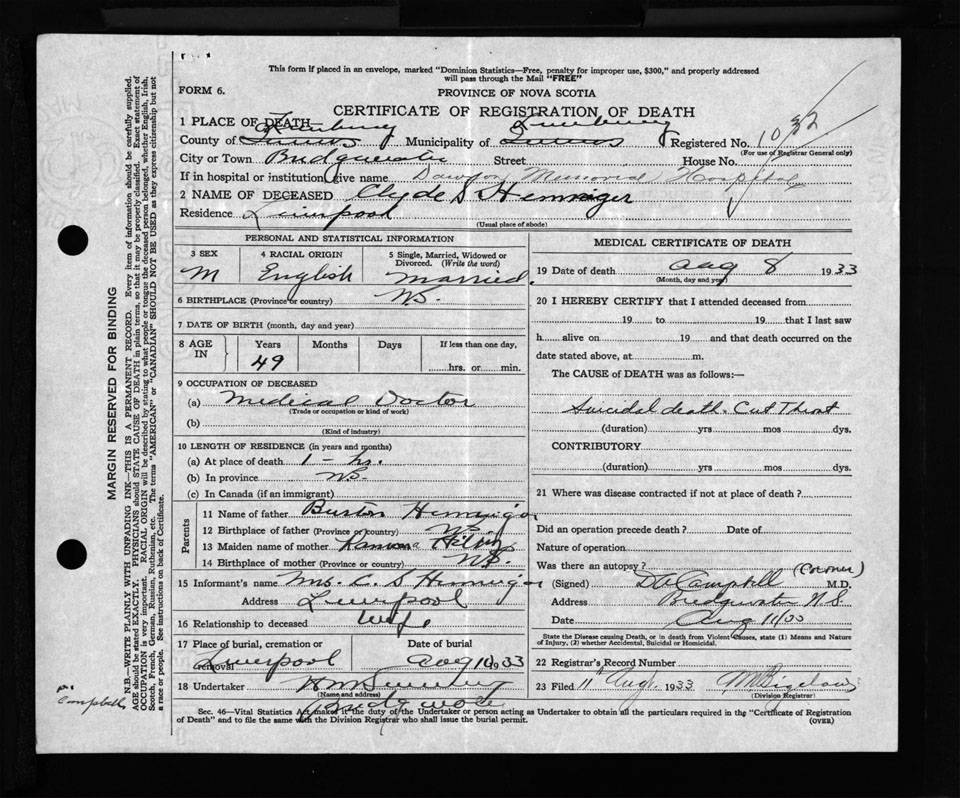 This form if placed in an envelope, marked "Dominion Statistics—Free, penalty for improper use, $300," and properly addressed
will pass through the Mail "FREE"
FORM 6.
PROVINCE OF NOVA SCOTIA
CERTIFICATE OF REGISTRATION OF DEATH
1 PLACE OF DEATH Lunenburg Lunenburg
County of Municipality of Registered No.
(For use of Registrar General only)
City or Town Bridgewater Street House No.
If in hospital or institution, give name Dawson Memorial Hospital
2 NAME OF DECEASED Clyde S Hennigar
Residence Liverpool
(Usual place of abode)
PERSONAL AND STATISTICAL INFORMATION
3 SEX 4 RACIAL ORIGIN 5 Single, Married, Widowed or
Divorced. (Write the word)
M English Married.
6 BIRTHPLACE (Province or country) N.S.
7 DATE OF BIRTH (month, day and year)
8 AGE IN Years Months Days If less than one day,
49 hrs. or min.
9 OCCUPATION OF DECEASED
(a) Medical Doctor
(Trade or occupation or kind of work)
(b)
(Kind of industry)
10 LENGTH OF RESIDENCE (in years and months)
(a) At place of death 1 - hr.
(b) In province N.S.
(c) In Canada (if an immigrant)
Parents
11 Name of father Burton Hennigar
12 Birthplace of father (Province or country) N.S.
13 Maiden name of mother
14 Birthplace of mother (Province or country) N.S.
15 Informant's name Mrs. C. S Hennigar
Address Liverpool
16 Relationship to deceased Wife
17 Place of burial, cremation or removal Date of burial
Liverpool Aug 10 1933
18 Undertaker
(Name and address)
Bridgewater
MEDICAL CERTIFICATE OF DEATH
19 Date of death Aug 8 1933
(Month, day and year)
20 I HEREBY CERTIFY that I attended deceased from
19 to 19 that I last saw
h alive on 19 and that death occurred on the
date stated above, at m.
The CAUSE of DEATH was as follows:—
Suicidal death. Cut Throat
(duration) yrs mos dys.
CONTRIBUTORY
(duration) yrs mos dys.
21 Where was disease contracted if not at place of death?
Did an operation precede death? Date of
Nature of operation
Was there an autopsy? (Coroner)
(Signed) D A Campbell M.D.
Address Bridgewater N.S
Date Aug 11/33
State the Disease causing Death, or in death from Violent Causes, state (1) Means and Nature
of Injury, (2) whether Accidental, Suicidal or Homicidal.
22 Registrar's Record Number
23 Filed 11 Aug. 1933
(Division Registrar)
Sec. 46—Vital Statistics Act makes it the duty of the Undertaker or person acting as Undertaker to obtain all the particulars required in the "Certificate of Registration
of Death" and to file the same with the Division Registrar who shall issue the burial permit.
(OVER)
MARGIN RESERVED FOR BINDING
N.B.—WRITE PLAINLY WITH UNFADING INK—THIS IS A PERMANENT RECORD. Every item of information should be carefully supplied.
AGE should be stated EXACTLY. PHYSICIANS should STATE CAUSE OF DEATH in plain terms, so that it may be properly classified. Exact statement of
OCCUPATION is very important. RACIAL ORIGIN will be described by stating to what people or tongue the deceased person belonged, whether English, Irish,
Scotch, French, German, Russian, Ruthenian, etc. The terms "AMERICAN" or "CANADIAN" SHOULD NOT BE USED as they express citizenship but not
a race or people. See instructions on back of Certificate.
Campbell